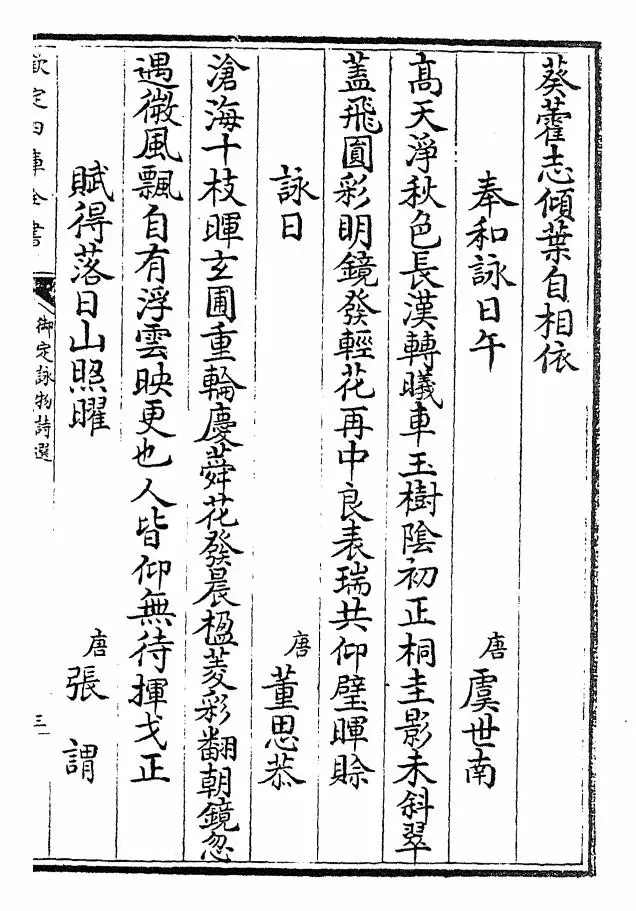 葵藿志傾葉自相依
奉和詠日午
唐 虞世南
髙天淨秋色長漢轉曦車玉樹陰初正桐圭影未斜翠
蓋飛圓彩明鏡發輕花再中良表瑞共仰璧暉賖
詠日
唐 董思恭
滄海十枝暉玄圃重輪慶蕣花發晨楹菱彩翻朝鏡忽
遇微風飄自有浮雲映更也人皆仰無待揮戈正
賦得落日山照曜
唐 張謂
欽定四庫全書
御定詠物詩選
三